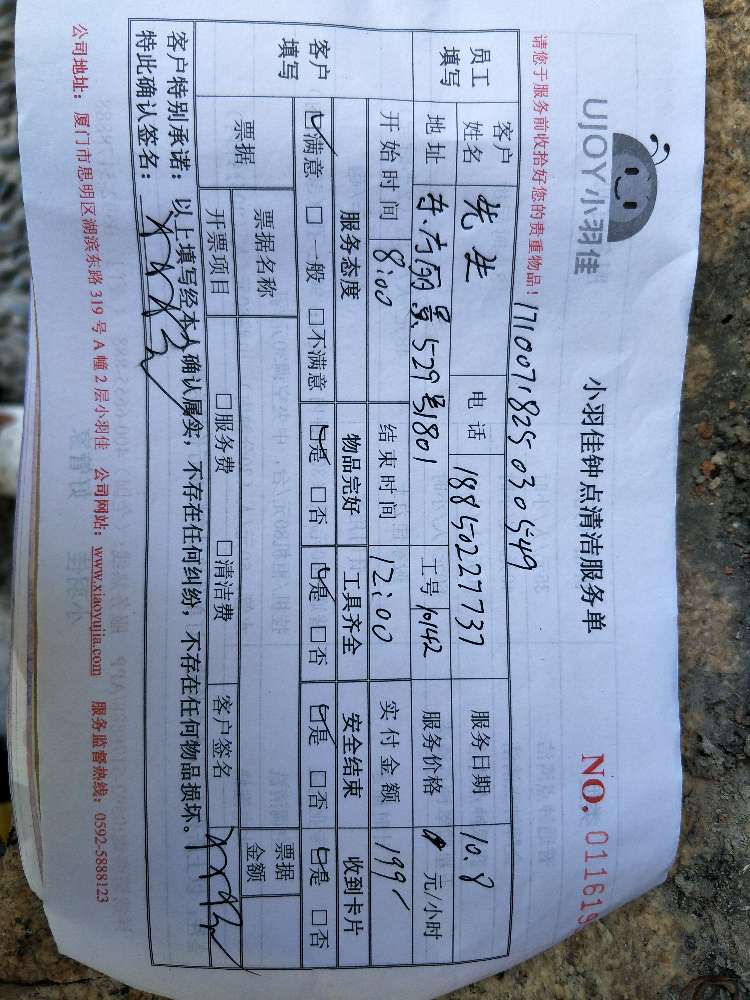 UJOY小羽佳
小羽佳钟点清洁服务单
NO. 011619
请您于服务前收拾好您的贵重物品！
1710071825030549
员工填写
客户姓名 先生 电话 18850227737 服务日期 10.8
地址 东方丽景529号1801 工号 10142 服务价格 元/小时
开始时间 8:00 结束时间 12:00 实付金额 199
客户填写
服务态度 物品完好 工具齐全 安全结束 收到卡片
☑满意 □一般 □不满意 ☑是 □否 ☑是 □否 ☑是 □否 ☑是 □否
票据 票据名称 票据金额
开票项目 □服务费 □清洁费 客户签名
客户特别承诺：以上填写经本人确认属实，不存在任何纠纷，不存在任何物品损坏。
特此确认签名：
公司地址：厦门市思明区湖滨东路319号A幢2层小羽佳 公司网站：www.xiaoyujia.com 服务监督热线：0592-5888123